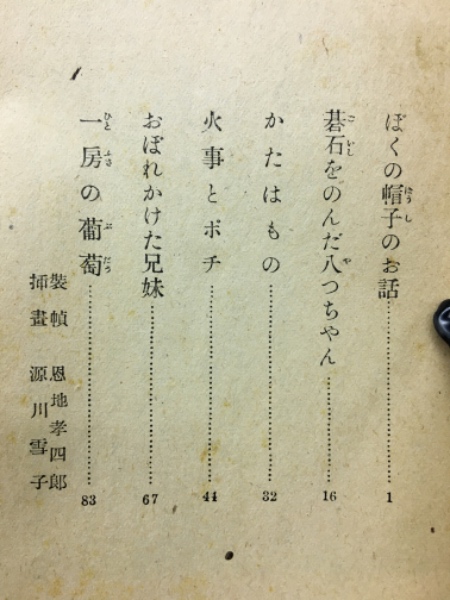 ぼくの帽子のお話……………………1
碁石をのんだ八つちやん……………16
かたはもの……………………………32
火事とポチ……………………………44
おぼれかけた兄妹……………………67
一房の葡萄……………………………83
裝幀 恩地孝四郎
挿畫 源川雪子